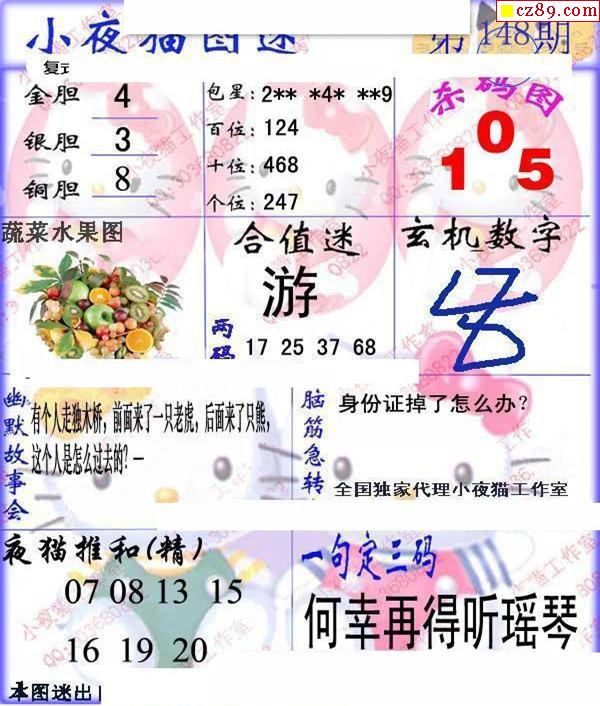 cz89.com
小夜猫图迷 第148期
金胆 4
银胆 3
铜胆 8
包星：2** *4* **9
百位：124
十位：468
个位：247
杀码图
105
蔬菜水果图
合值迷
游
两码
17 25 37 68
玄机数字
幽默故事会
有个人走独木桥，前面来了一只老虎，后面来了只熊，
这个人是怎么过去的？—
脑筋急转
身份证掉了怎么办？
全国独家代理小夜猫工作室
夜猫推和(精)
07 08 13 15
16 19 20
一句定三码
何幸再得听瑶琴
本图迷出